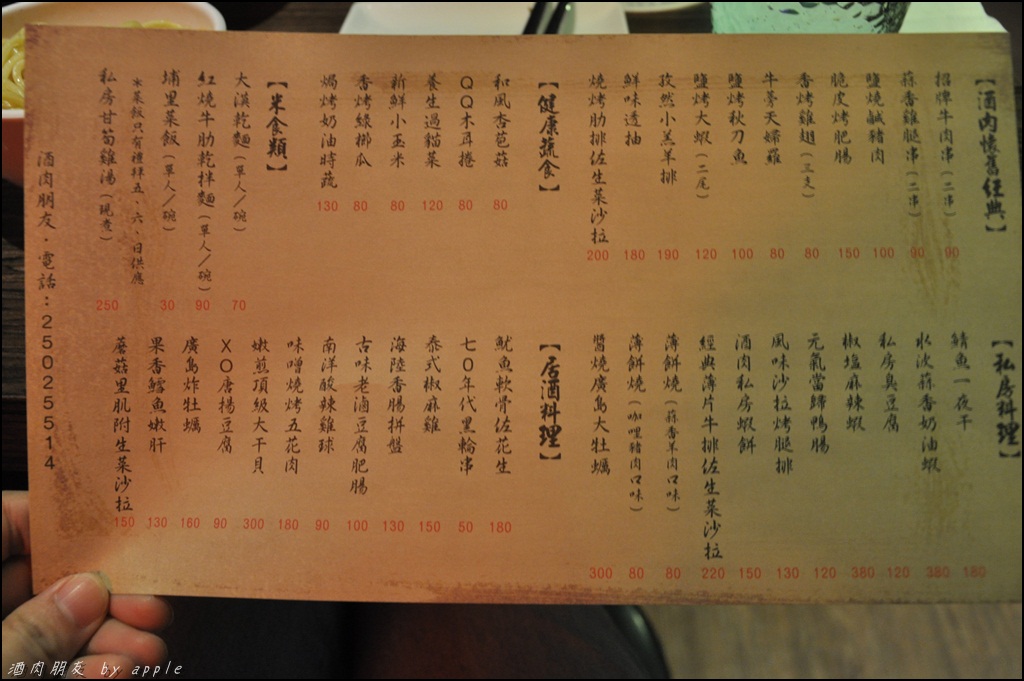 【酒肉懷舊經典】
招牌牛肉串(二串) 90
蒜香雞腿串(二串) 90
鹽燒鹹豬肉 100
脆皮烤肥腸 150
香烤雞翅(三支) 80
牛蒡天婦羅 80
鹽烤秋刀魚 100
鹽烤大蝦(二尾) 120
孜然小羔羊排 190
鮮味透抽 180
燒烤肋排佐生菜沙拉 200
【健康蔬食】
和風杏苞菇 80
QQ木耳捲 80
養生過貓菜 120
新鮮小玉米 80
香烤綠櫛瓜 80
焗烤奶油時蔬 130
【米食類】
大漠乾麵(單人/碗) 70
紅燒牛肋乾拌麵(單人/碗) 90
埔里菜飯(單人/碗) 30
*菜飯只有禮拜五、六、日供應
私房甘筍雞湯(現煮) 250
【私房料理】
鯖魚一夜干 180
水波蒜香奶油蝦 380
私房臭豆腐 120
椒塩麻辣蝦 380
元氣當歸鴨腸 120
風味沙拉烤腿排 130
酒肉私房蝦餅 150
經典薄片牛排佐生菜沙拉 220
薄餅燒(蒜香羊肉口味) 80
薄餅燒(咖哩豬肉口味) 80
醬燒廣島大牡蠣 300
【居酒料理】
魷魚軟骨佐花生 180
七0年代黑輪串 50
泰式椒麻雞 150
海陸香腸拼盤 130
古味老滷豆腐肥腸 100
南洋酸辣雞球 90
味噌燒烤五花肉 180
嫩煎頂級大干貝 300
XO唐揚豆腐 90
廣島炸牡蠣 160
果香鱈魚嫩肝 130
蘑菇里肌附生菜沙拉 150
酒肉朋友·電話:25025514
酒肉朋友 by apple